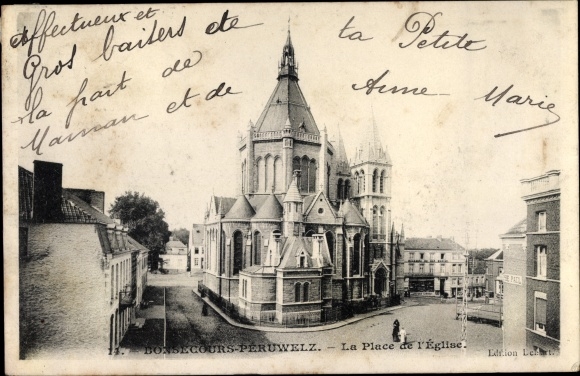 Affectueux et
Gros baisers de
la part de
Maman et de
ta Petite
Anne-Marie
11. BONSECOURS-PÉRUWELZ. - La Place de l'Église.